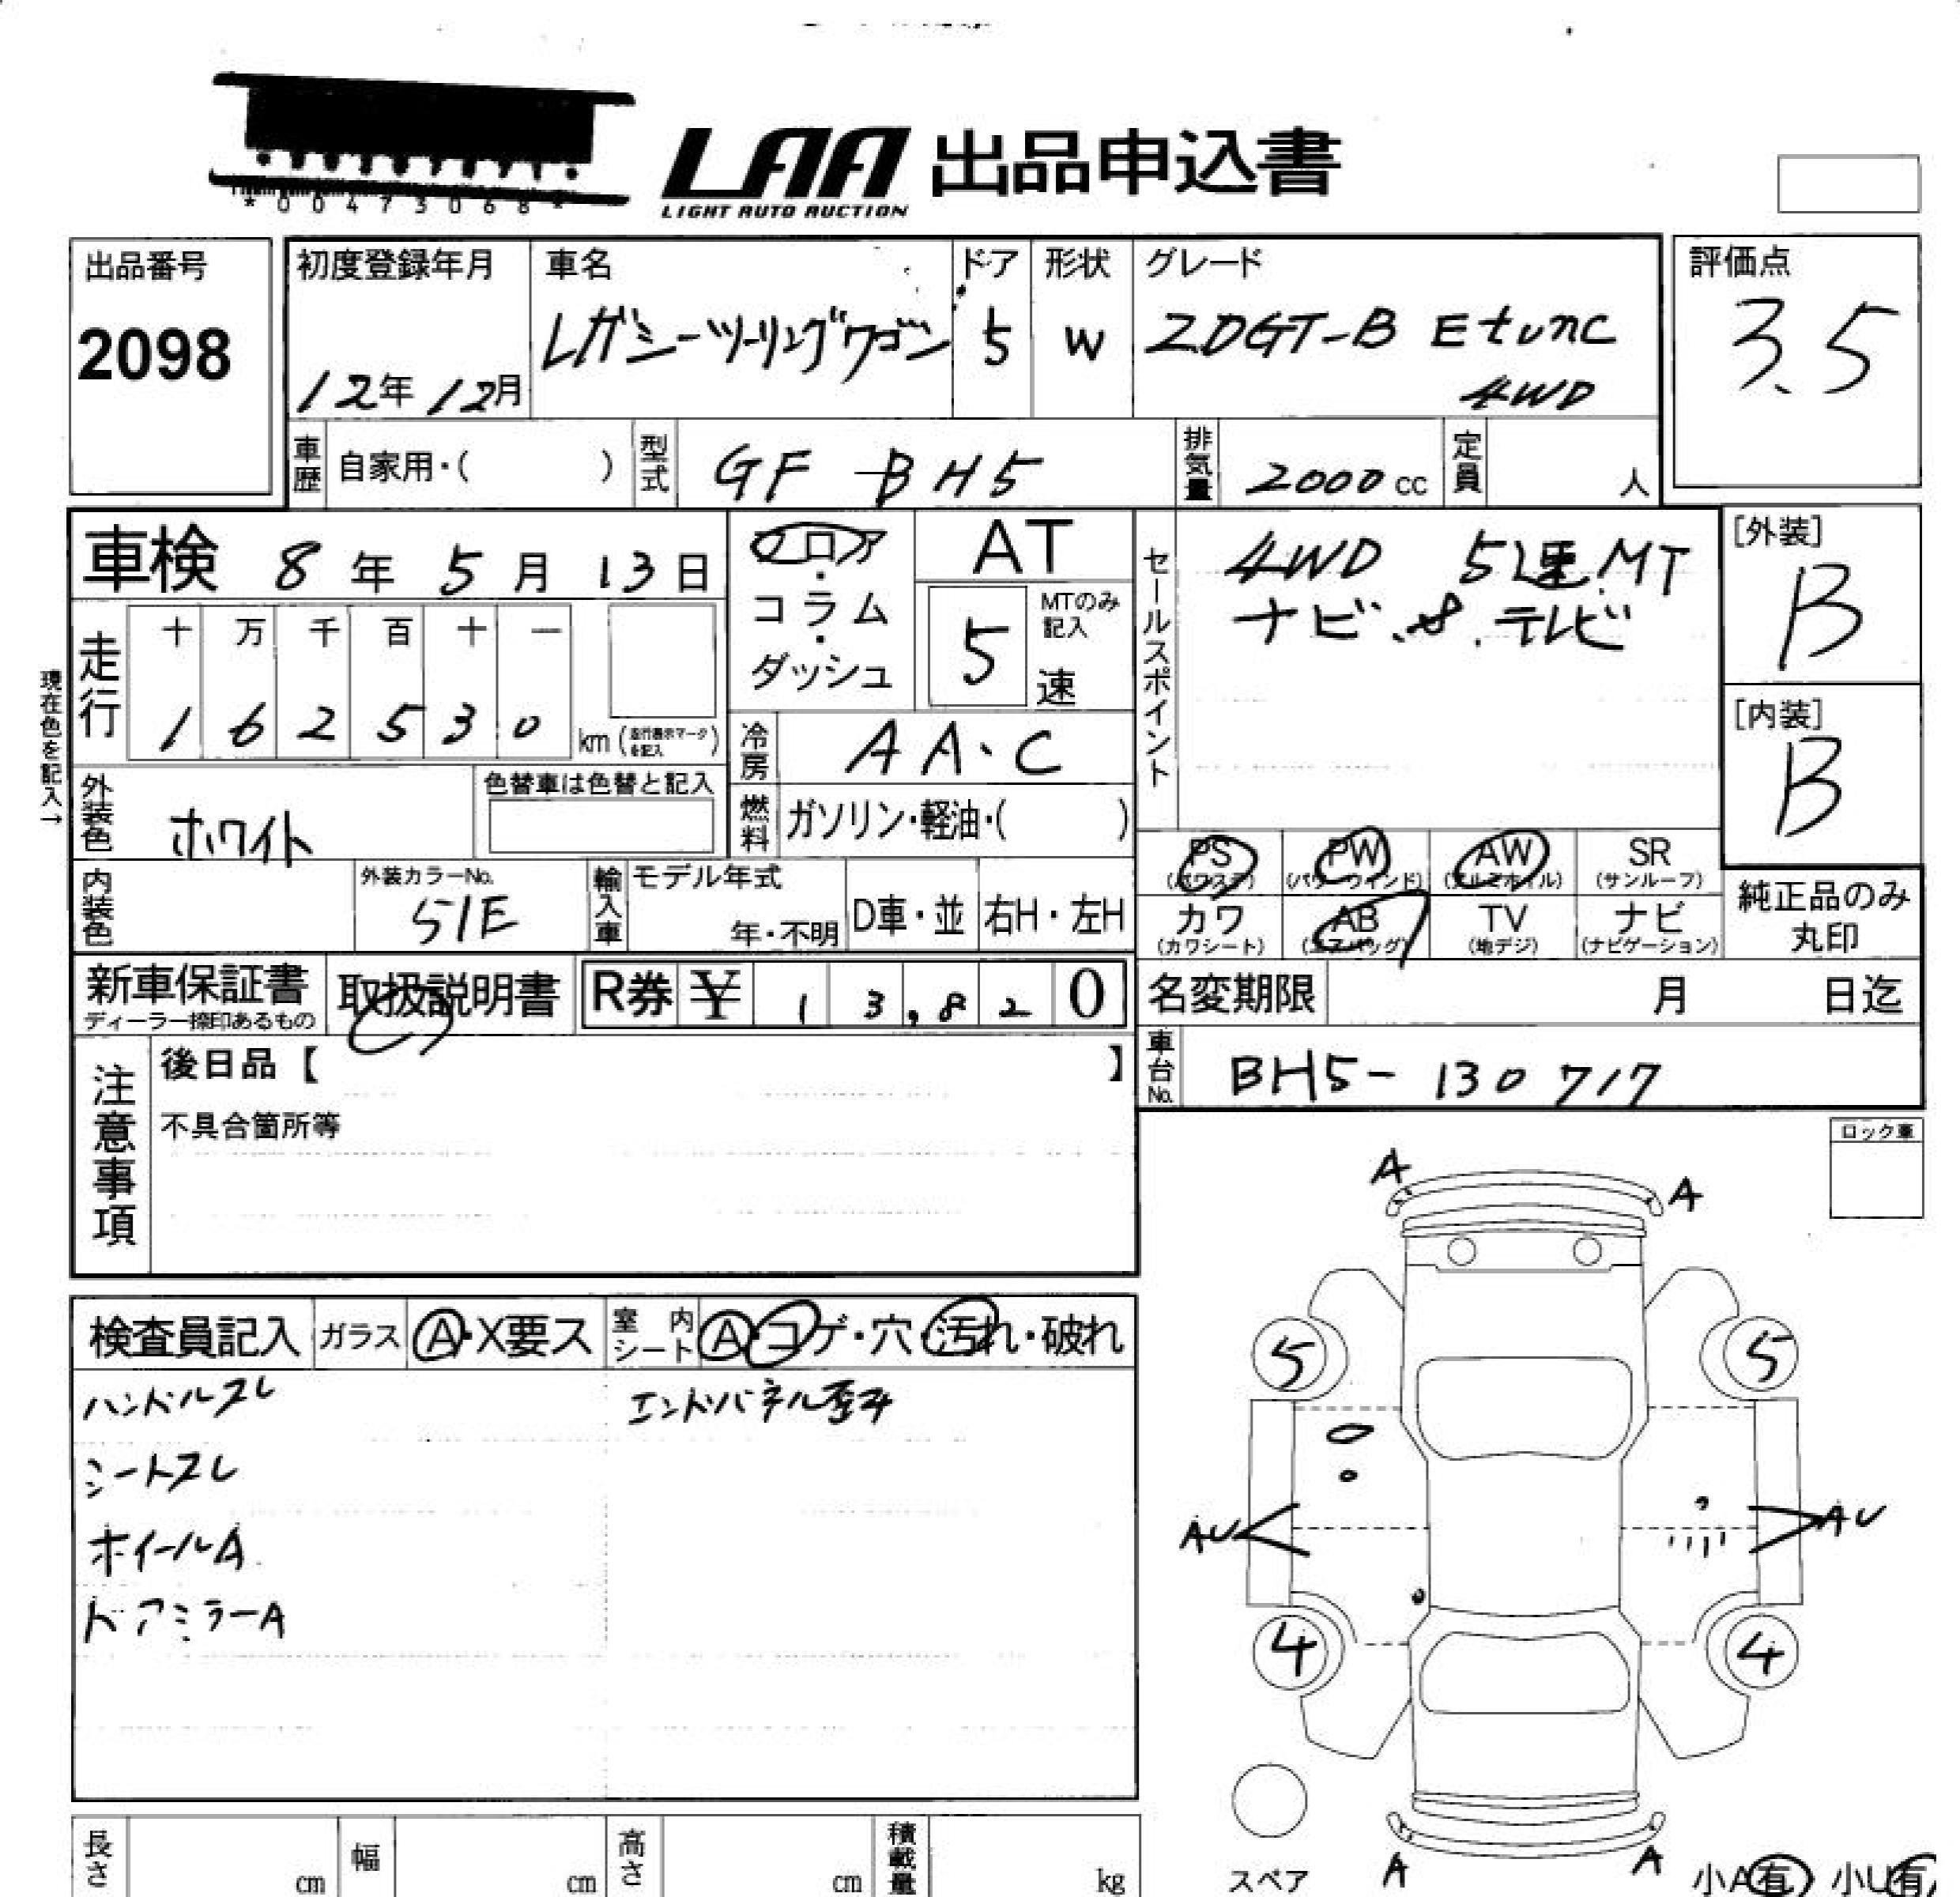 *00473068*
LAA 出品申込書
LIGHT AUTO AUCTION
出品番号
2098
初度登録年月
12年12月
車名
レガシーツーリングワゴン
ドア
5
形状
W
グレード
2.0GT-B Etune
4WD
評価点
3.5
車歴
自家用・( )
型式
GF-BH5
排気量
2000cc
定員
人
車検 8年5月13日
走行
現在色を記入→
十 万 千 百 十 一
1 6 2 5 3 0 km (走行表示マークを記入)
フロア・コラム・ダッシュ
AT
MTのみ記入
5速
冷房
AA.C
燃料
ガソリン・軽油・( )
セールスポイント
4WD 5速MT
ナビ、テレビ
[外装]
B
[内装]
B
外装色
ホワイト
色替車は色替と記入
内装色
外装カラーNo.
51E
輸入車
モデル年式
年・不明
D車・並
右H・左H
PS (パワステ)
PW (パワーウィンド)
AW (アルミホイル)
SR (サンルーフ)
カワ (カワシート)
AB (エアバッグ)
TV (地デジ)
ナビ (ナビゲーション)
純正品のみ丸印
新車保証書
ディーラー捺印あるもの
取扱説明書
R券 ¥ 13,820
名変期限 月 日迄
車台No.
BH5-130717
注意事項
後日品【 】
不具合箇所等
ロック車
検査員記入
ガラス A・X要ス
室内シート A・コゲ・穴・汚れ・破れ
ハンドルスレ
シートスレ
ホイールA
ドアミラーA
エンドパネル歪み
A
A
5
5
AU
AU
4
4
スペア
A
A
小A有 小U有
長さ cm
幅 cm
高さ cm
積載量 kg